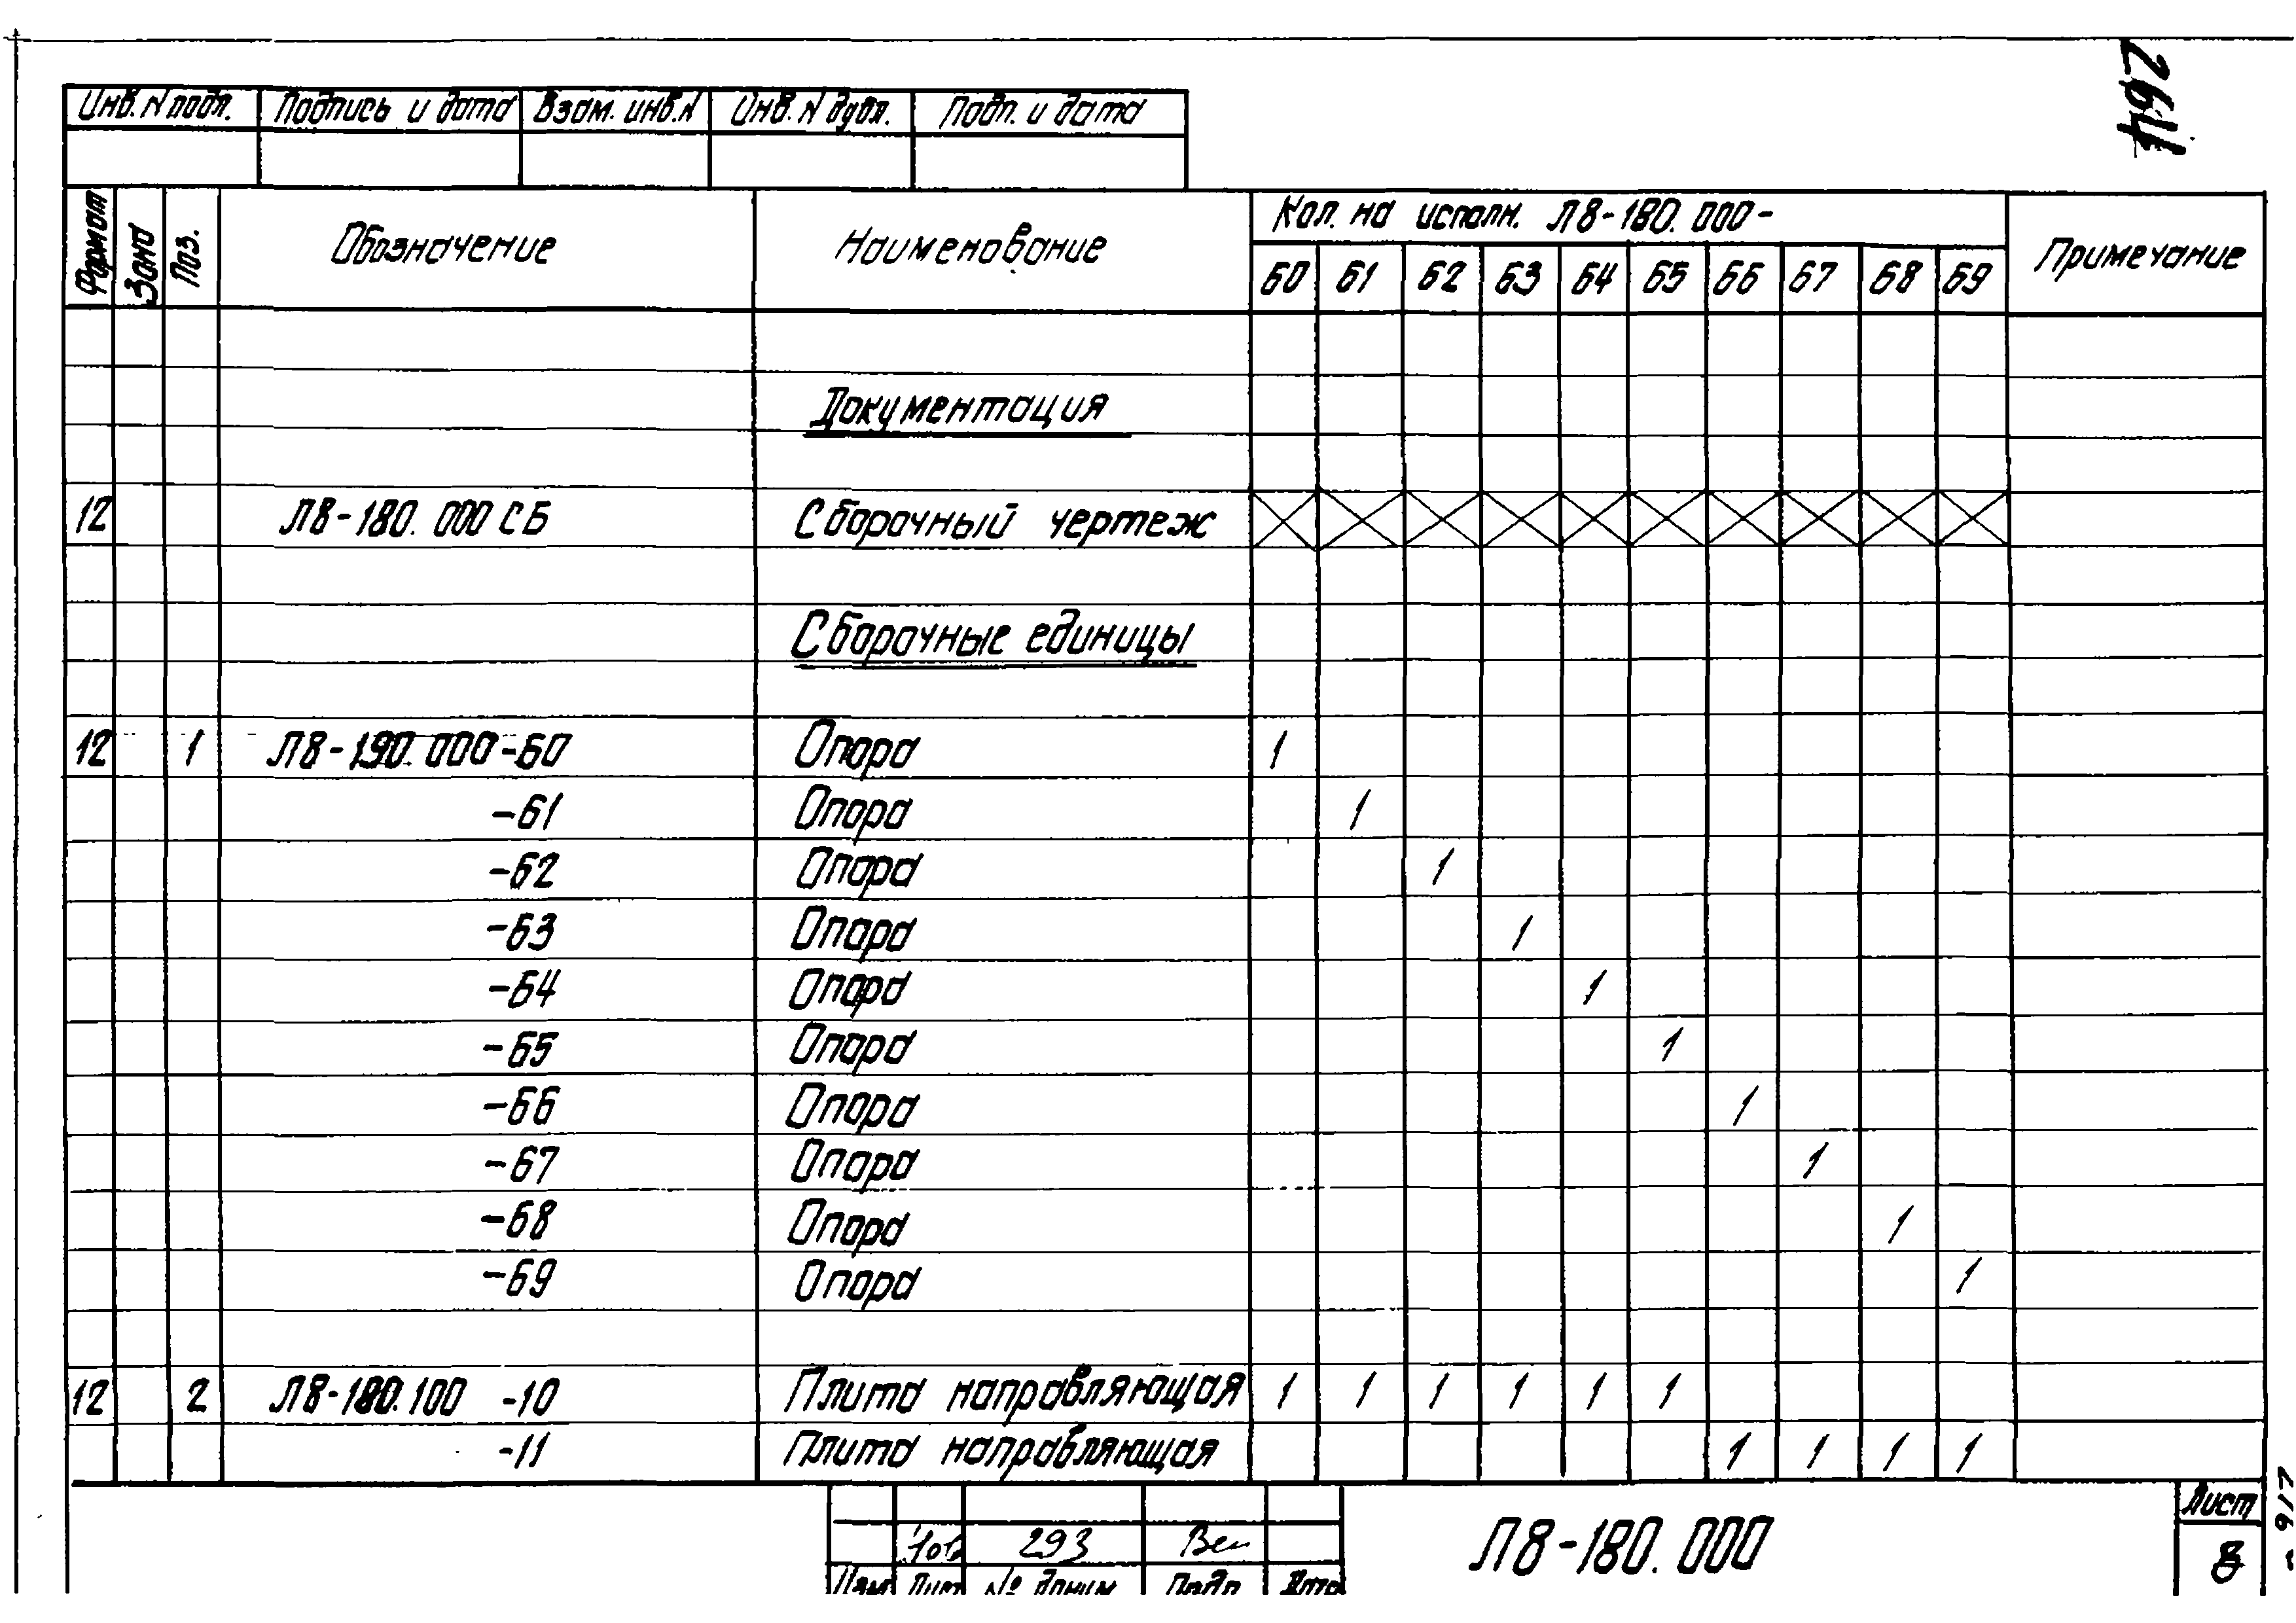 264
Инв. N подл. Подпись и дата Взам. инв. N Инв. N дубл. Подп. и дата
Формат Зона Поз. Обозначение Наименование Кол. на исполн. Л8-180.000- Примечание
60 61 62 63 64 65 66 67 68 69
Документация
12 Л8-180.000 СБ Сборочный чертеж
Сборочные единицы
12 1 Л8-190.000-60 Опора 1
-61 Опора 1
-62 Опора 1
-63 Опора 1
-64 Опора 1
-65 Опора 1
-66 Опора 1
-67 Опора 1
-68 Опора 1
-69 Опора 1
12 2 Л8-180.100 -10 Плита направляющая 1 1 1 1 1 1
-11 Плита направляющая 1 1 1 1
293
Изм Лист № докум Подп Дата
Л8-180.000
Лист
8